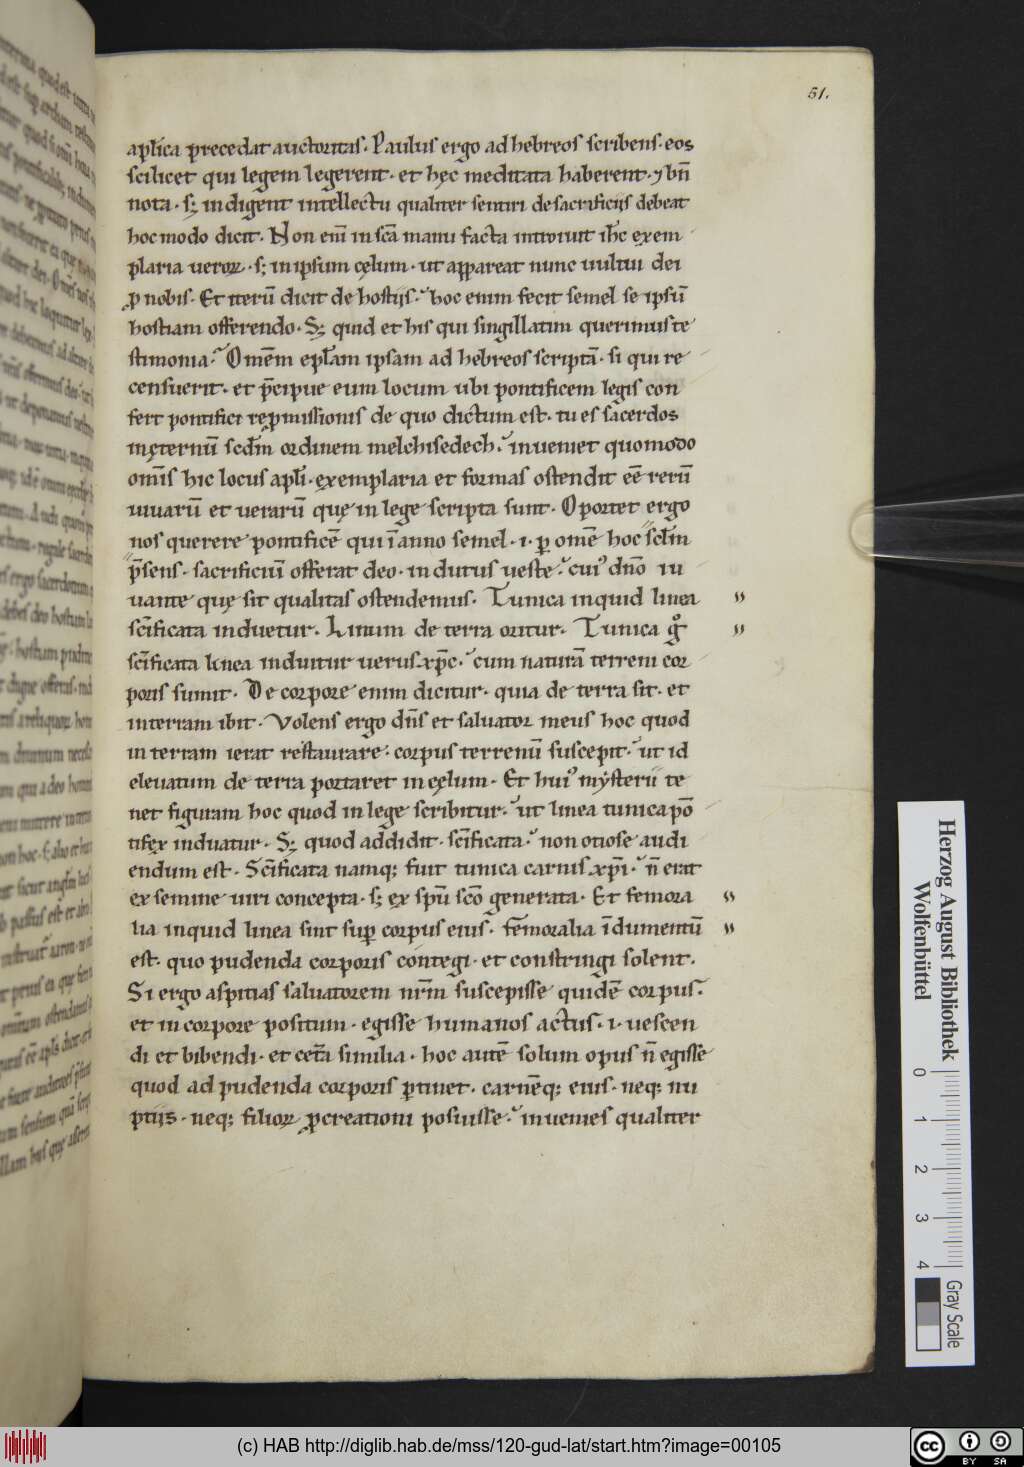 51.
apl̅ica precedat auctoritas. Paulus ergo ad hebreos scribens. eos
scilicet qui legem legerent. et hęc meditata haberent. ⁊ bn̅
nota. s; indigent intellectu qualiter sentiri de sacrificiis debeat
hoc modo dicit. Non eni̅ in sca̅ manu facta introiuit ih̅c exem
plaria ueroꝝ. s; in ipsum cęlum. ut appareat nunc uultui dei
ꝓ nobis. Et iteru̅ dicit de hostiis. hoc enim fecit semel se ipsu̅
hostiam offerendo. S; quid et his qui singillatim querimus te
stimonia. Ome̅m epl̅am ipsam ad hebreos scripta̅. si qui re
censuerit. et p̅cipue eum locum ubi pontificem legis con
fert pontifici repmissionis de quo dictum est. tu es sacerdos
inęternu̅ scd̅m ordinem melchisedech. inueniet quomodo
omi̅s hic locus apl̅i. exemplaria et formas ostendit ee̅ reru̅
uiuaru̅ et ueraru̅ quę in lege scripta sunt. Oportet ergo
nos querere pontifice̅ qui i̅ anno semel. i. ꝑ ome̅ hoc scl̅m
p̅sens. sacrificiu̅ offerat deo. indutus ueste. cui᾽ dn̅o iu
uante quę sit qualitas ostendemus. Tunica inquid linea
sc̅ificata induetur. Linum de terra oritur. Tunica g̊
sc̅ificata linea induitur uerus xp̅c. cum natura̅ terreni cor
poris sumit. De corpore enim dicitur. quia de terra sit. et
in terram ibit. Volens ergo dn̅s et saluator meus hoc quod
in terram ierat restaurare. corpus terrenu̅ suscepit. ut id
eleuatum de terra portaret in cęlum. Et hui᾽ mẏsterii te
net figuram hoc quod in lege scribitur. ut linea tunica po̅
tifex induatur. S; quod addidit. sc̅ificata. non otiose audi
endum est. Sc̅ificata namq; fuit tunica carnis xp̅i. n̅ erat
ex semine uiri concepta. s; ex spu̅ sco̅ generata. Et femora
lia inquid linea sint suꝑ corpus eius. fem̅oralia i̅dumentu̅
est. quo pudenda corporis contegi. et constringi solent.
Si ergo aspitias saluatorem nr̅m suscepisse quide̅ corpus.
et in corpore positum. egisse humanos actus. i. uescen
di et bibendi. et cet̅a similia. hoc aute̅ solum opus n̅ egisse
quod ad pudenda corporis ꝑtinet. carne̅q; eius. neq; nu
ptiis. neq; filioꝝ ꝓcreationi posuisse. inuenies qualiter
Herzog August Bibliothek
Wolfenbüttel
0 1 2 3 4
Gray Scale
(c) HAB http://diglib.hab.de/mss/120-gud-lat/start.htm?image=00105
cc BY SA